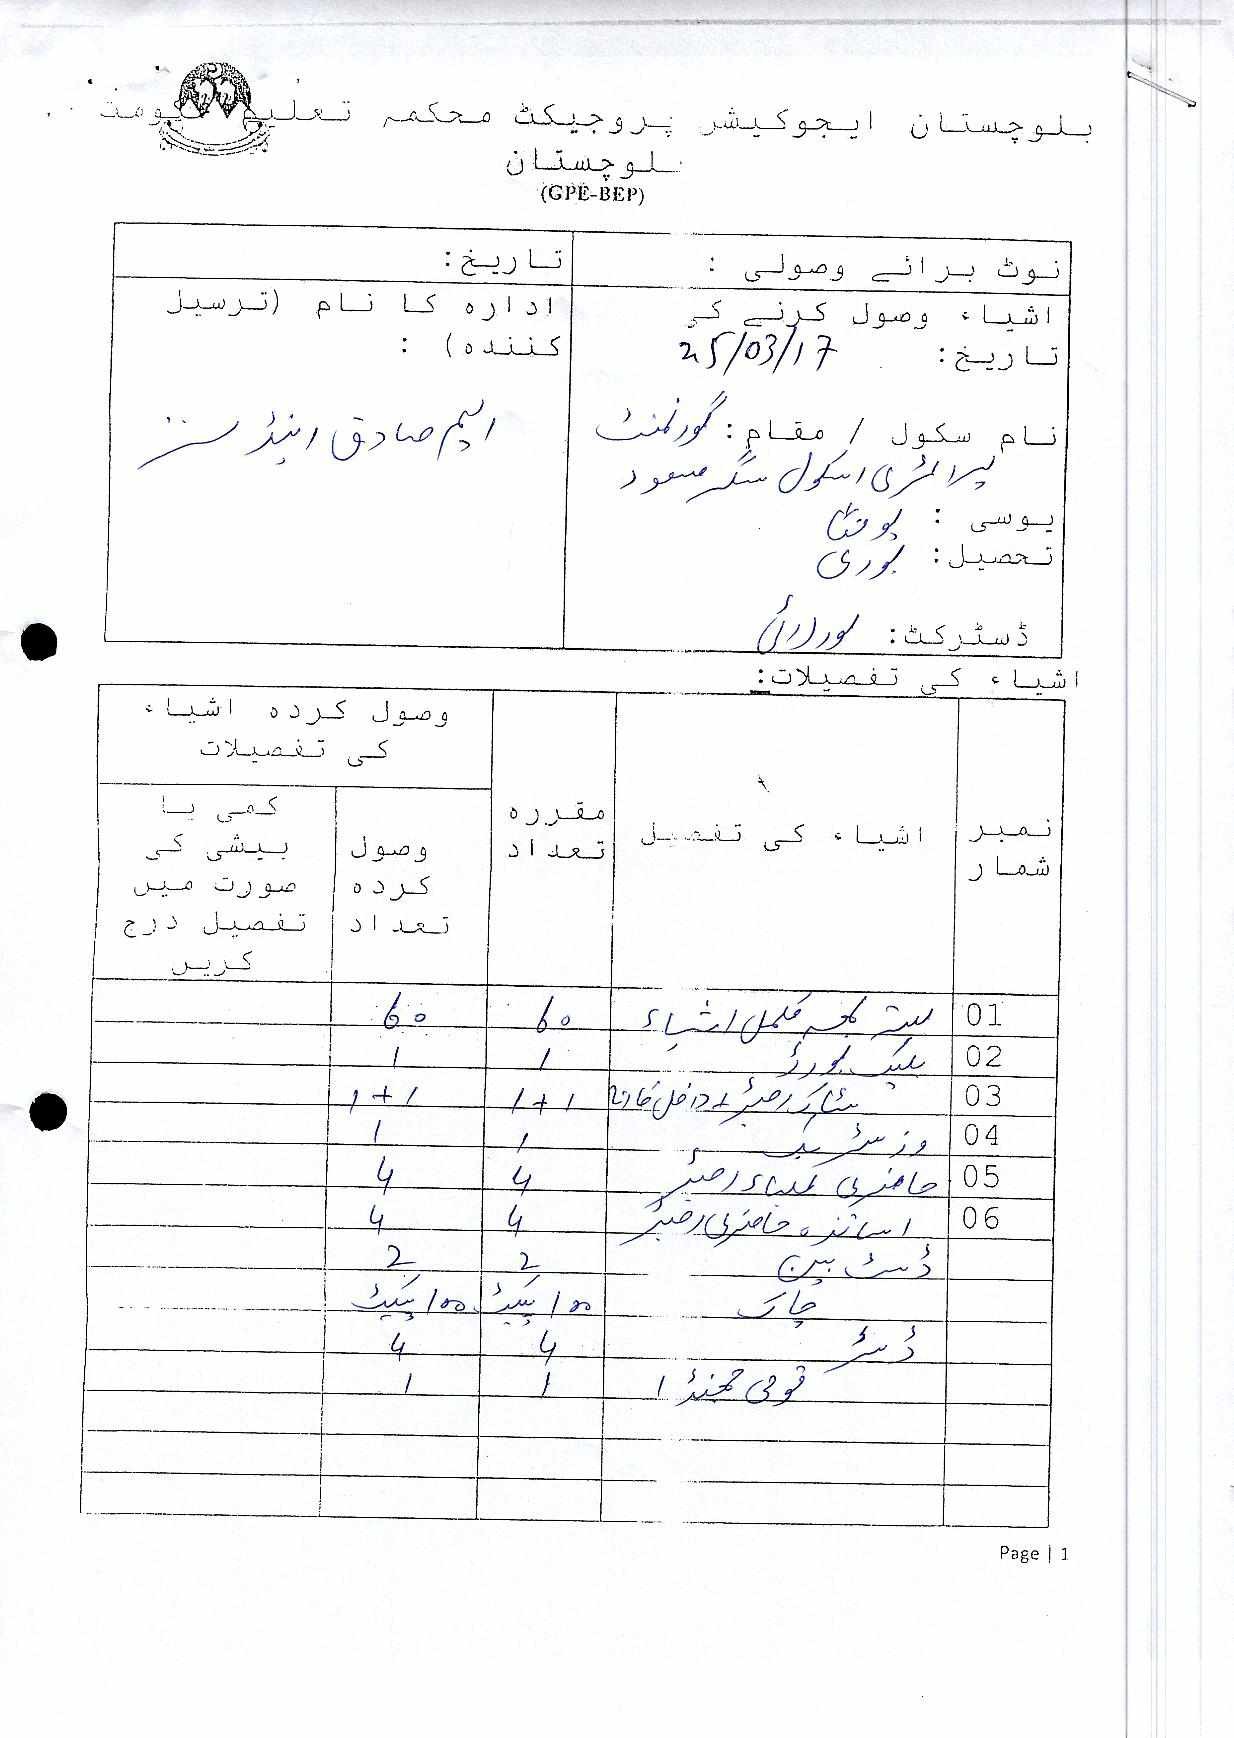 بلوچستان ایجوکیشن پروجیکٹ محکمہ تعلیم حکومت
بلوچستان
(GPE-BEP)
نوٹ برائے وصولی :
تاریخ:
اشیاء وصول کرنے کی
تاریخ: 25/03/17
نام سکول / مقام: گورنمنٹ
پرائمری اسکول سگر مسعود
یوسی :
تحصیل: بوری
ڈسٹرکٹ: لورالائی
ادارہ کا نام (ترسیل
کنندہ) :
ایم صادق اینڈ سنز
اشیاء کی تفصیلات:
نمبر شمار اشیاء کی تفصیل مقررہ تعداد وصول کردہ اشیاء کی تفصیلات
وصول کردہ تعداد کمی یا بیشی کی صورت میں تفصیل درج کریں
01 بستے بمعہ مکمل اشیاء 60 60
02 بلیک بورڈ 1 1
03 سٹاک رجسٹر + داخل خارجہ 1+1 1+1
04 وزیٹر بک 1 1
05 حاضری طلباء رجسٹر 4 4
06 اساتذہ حاضری رجسٹر 4 4
ڈسٹ بین 2 2
چاک 100 پیکٹ 100 پیکٹ
ڈسٹر 4 4
قومی جھنڈا 1 1
Page | 1